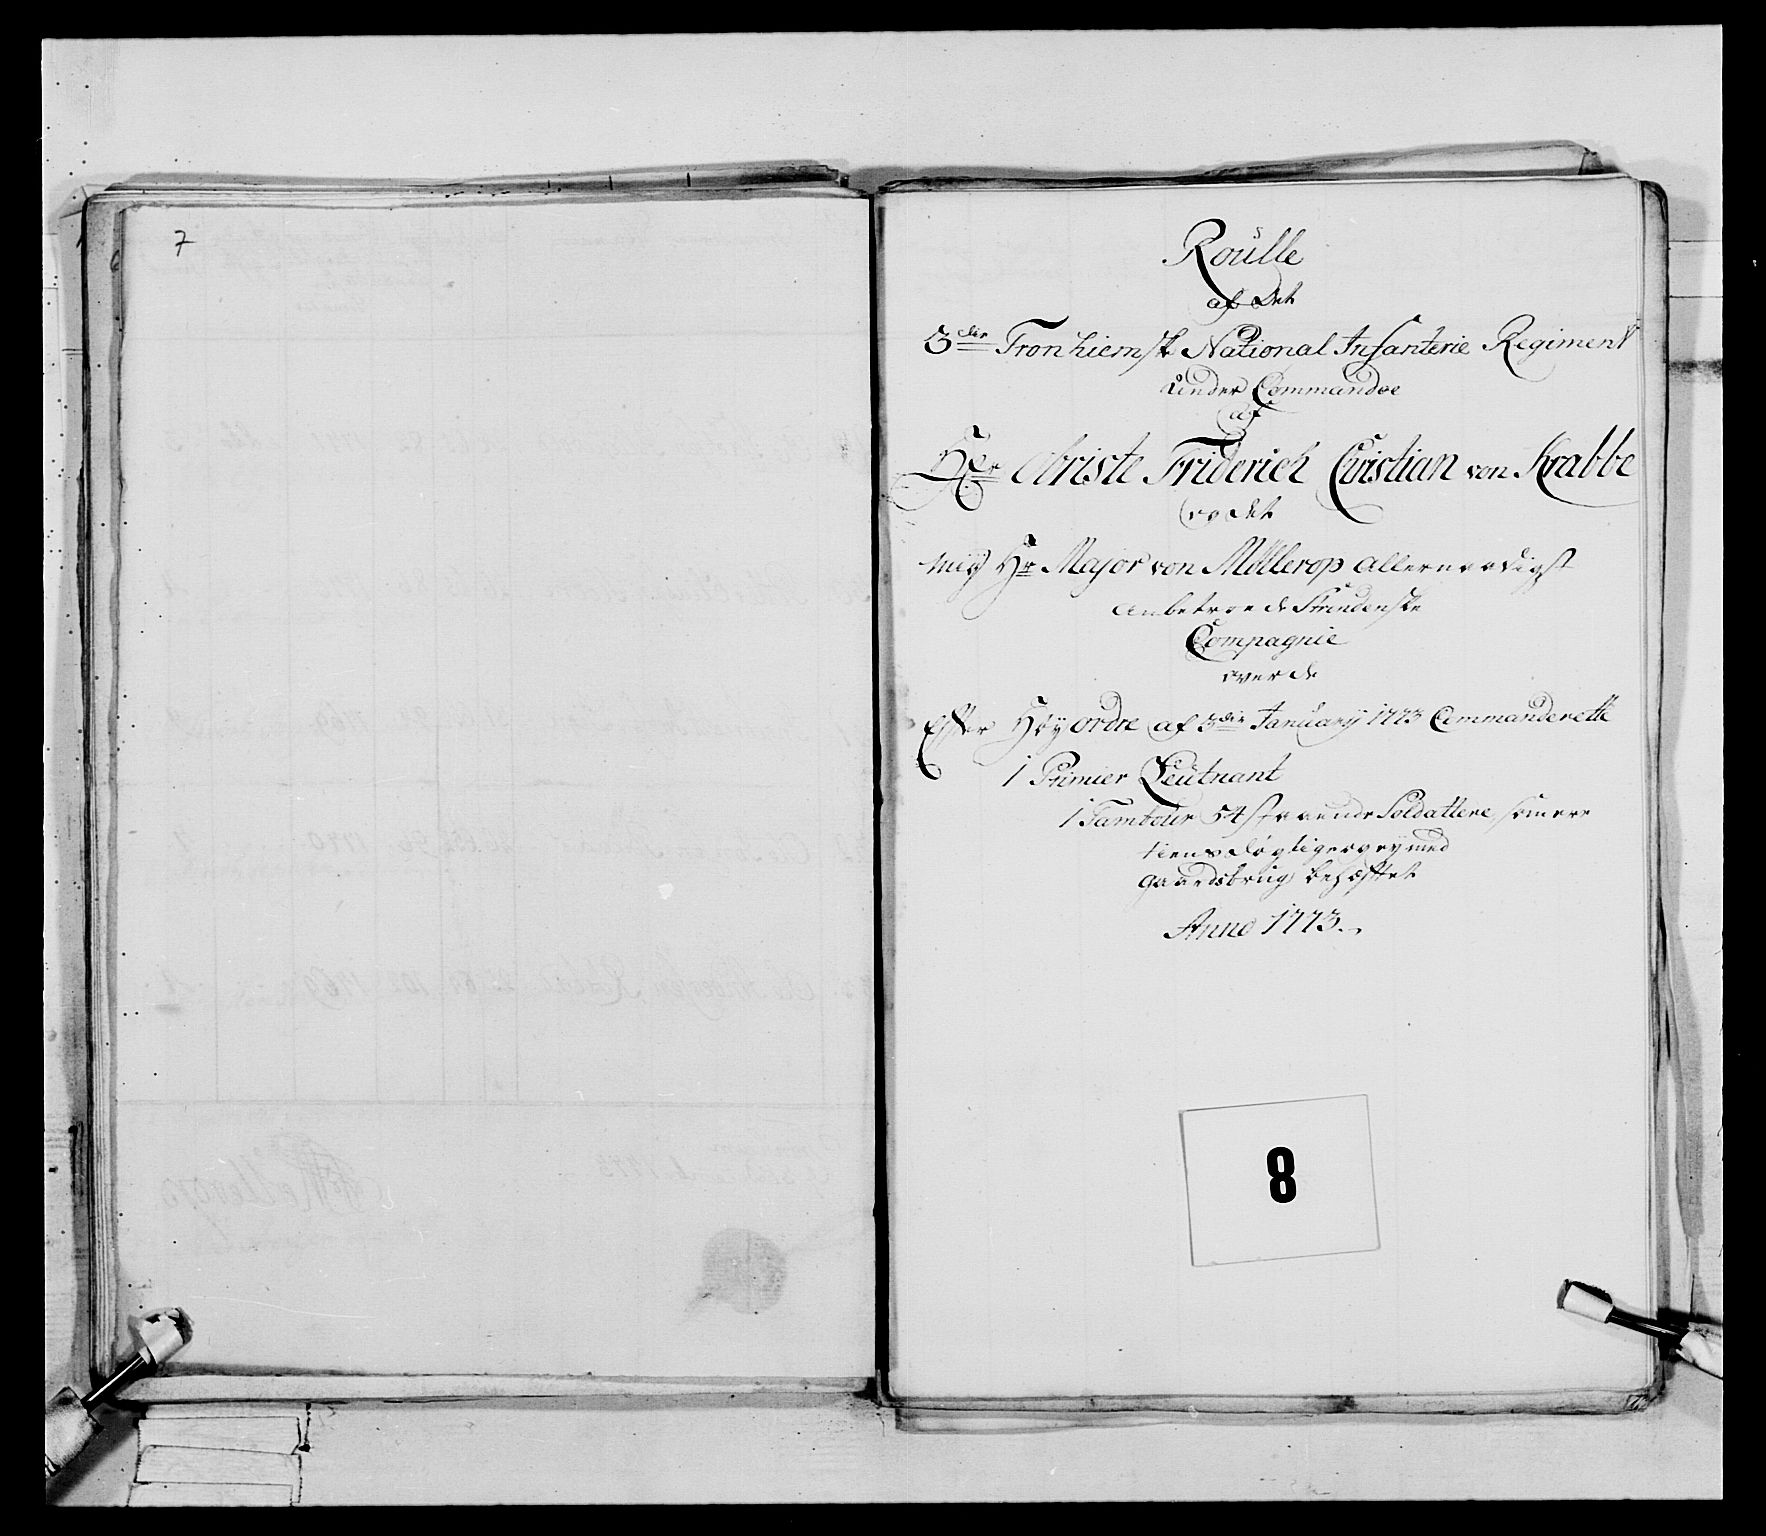 7
Roulle
af Det
3die Tronhiemske National Infanterie Regiment
under Commandoe
af
Her Obriste Friderich Christian von Krabbe
og det
mig Hr Major von Møllerop allernaadigst
anbetroede Strindenske
Compagnie
over de
Efter Høy ordre af 3die January 1773 Commanderette
1 Primier Leutnant
1 Tambour 54 staaende Soldattere som ere
med
gaardsbrug behæftet
Anno 1773.
8